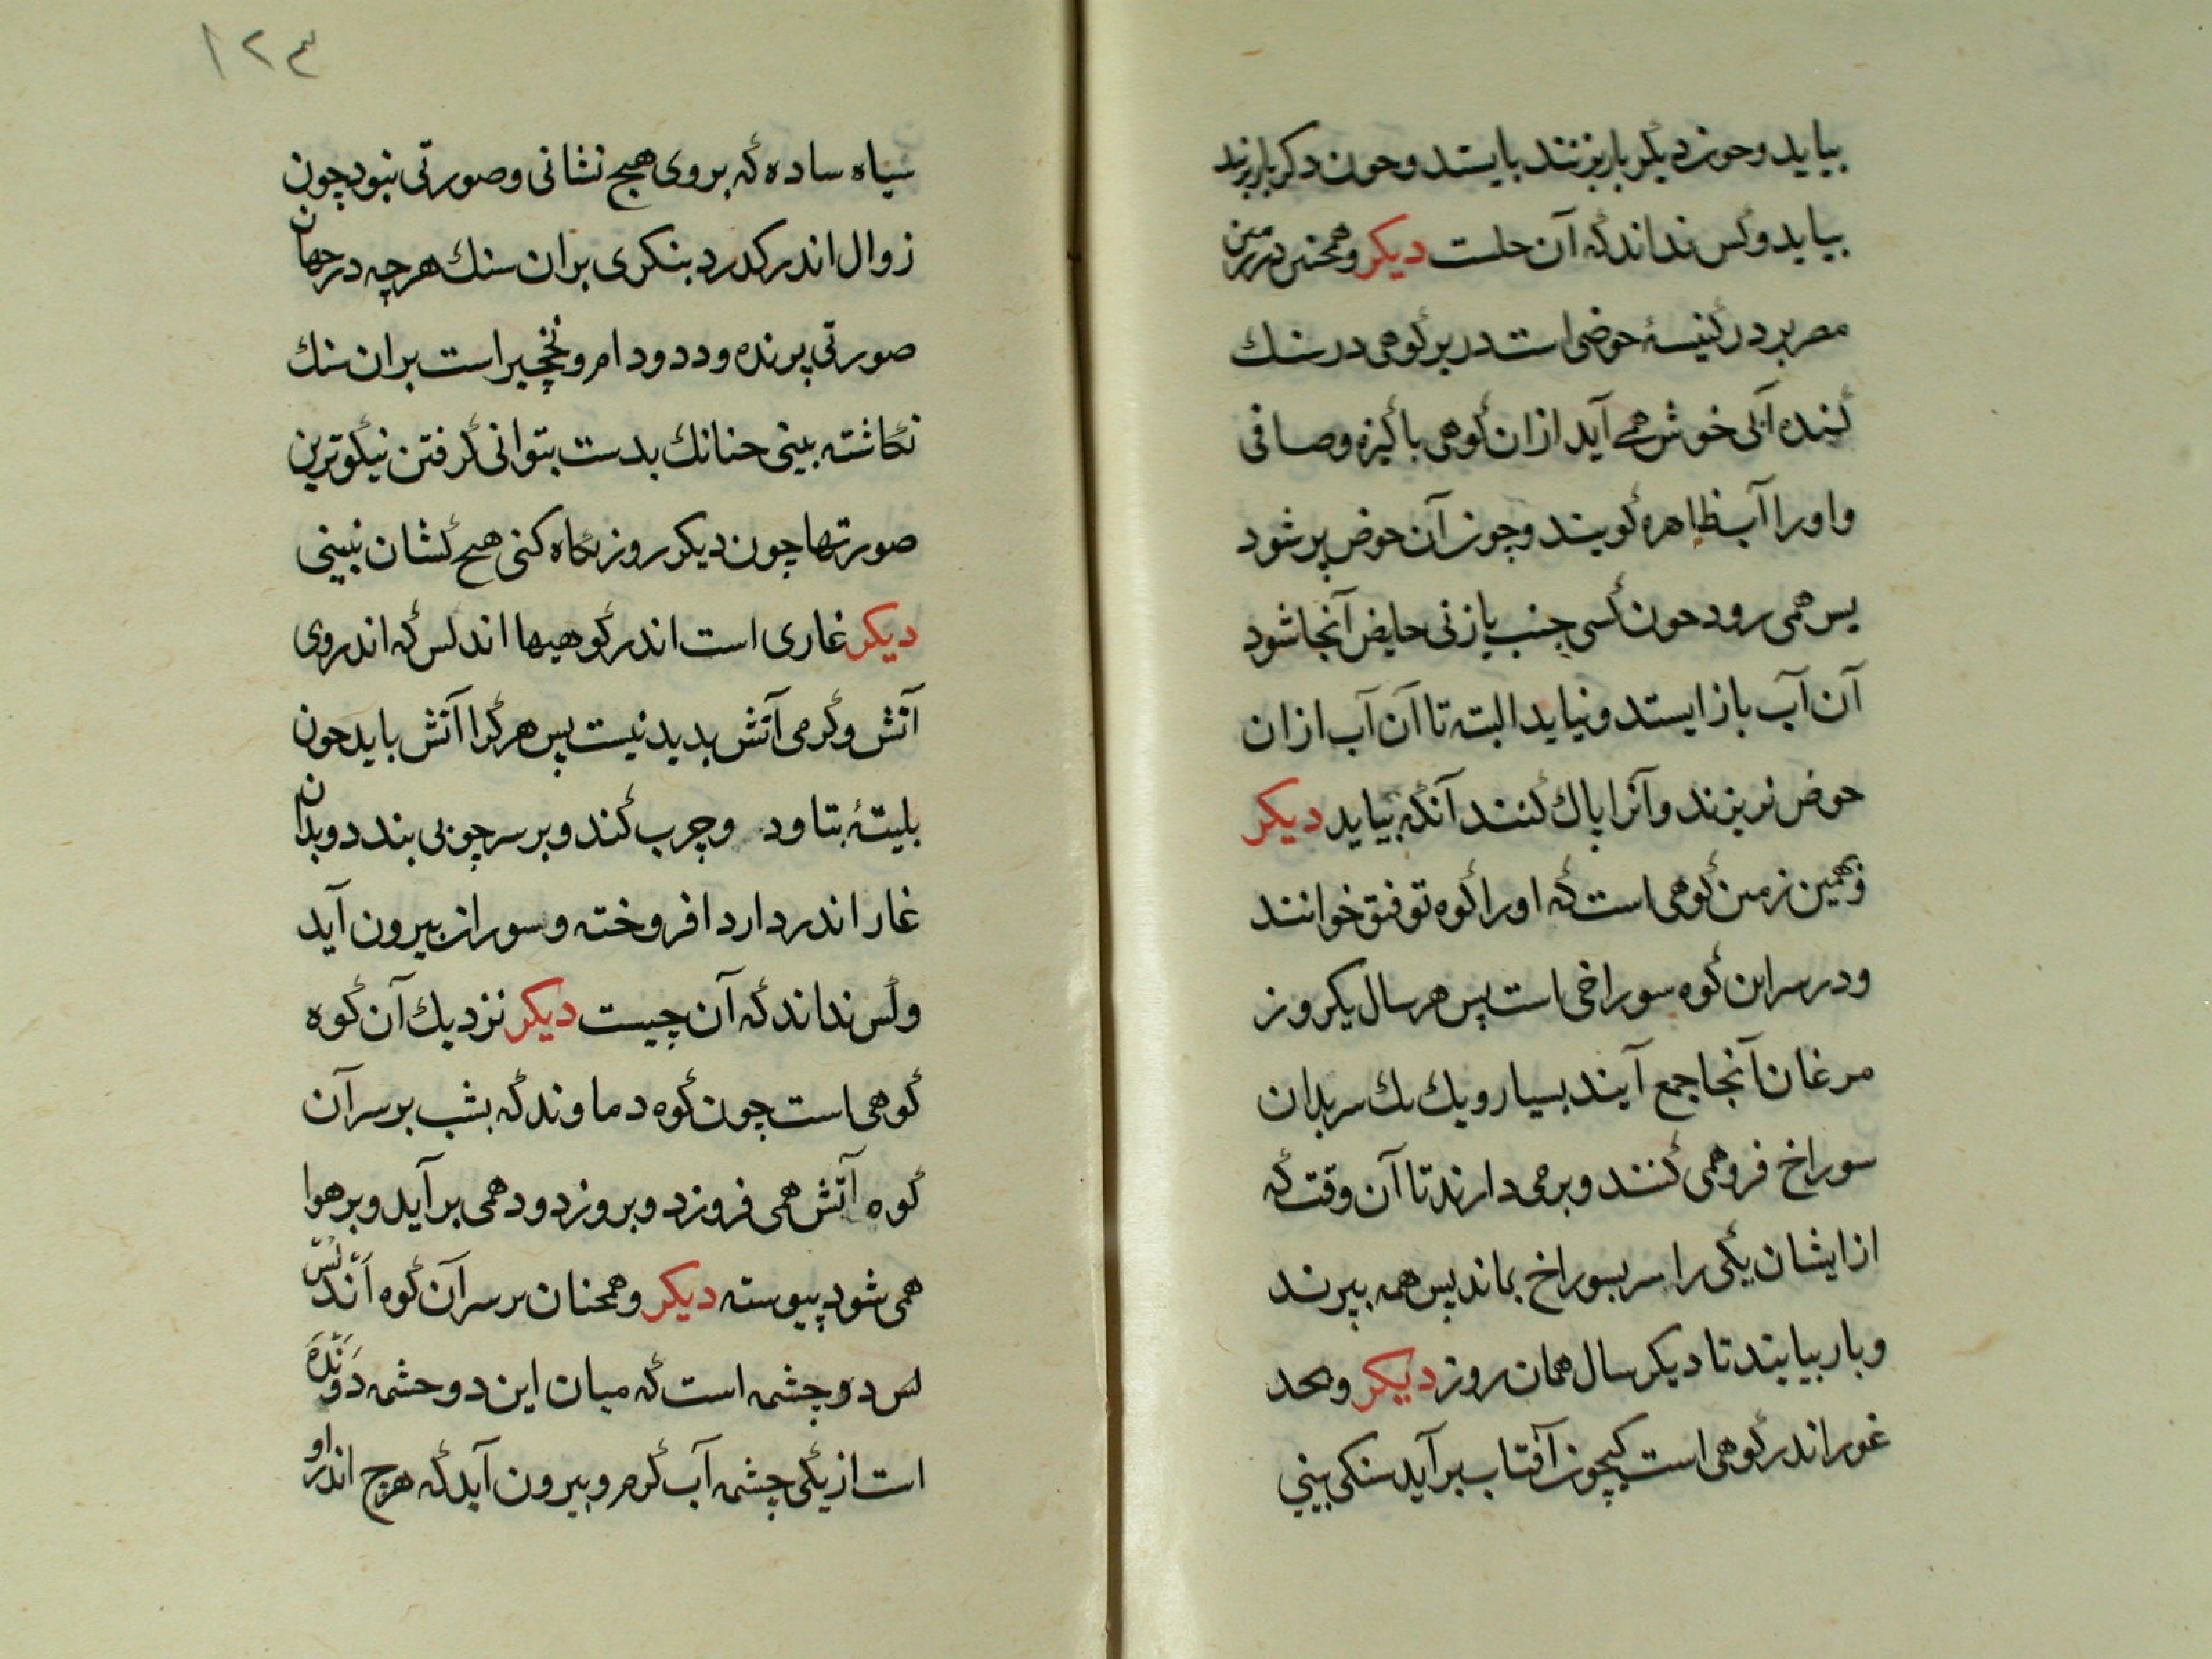 بیاید وحون دیکر بار بزنند بایستد وحون دکر بار بزند
بیاید وکس نداند که آن حلست دیکر وهمخنین در زمین
مصر بر در کنیسۀ حوضی است در بر کوهی در سنك
کنده آبی خوش همی آید ازان کوهی باکیزه وصافی
واورا آب ظاهره کویند وچون آن حوض پر شود
پس همی رود حون کسی جنب یا زنی حایض آنجا شود
آن آب باز ایستد ونیاید البته تا آن آب ازان
حوض نریزند وآنرا پاك کنند آنکه بیاید دیکر
وبهمین زمین کوهی است که اورا کوه توفیق خوانند
ودر سر این کوه سوراخی است پس هر سال یکروز
مرغان آنجا جمع آیند بسیار ویك یك سر بدان
سوراخ فرو همی کنند وبر می دارند تا آن وقت که
از ایشان یکی را سر بسوراخ بماند پس همه بپرند
وبار بیایند تا دیکر سال همان روز دیکر وبحد
غور اندر کوهی است کچون آفتاب بر آید سنکی بینی
۱۲۳
سیاه ساده که بروی هیچ نشانی وصورتی نبود چون
زوال اندر کدرد بنکری بران سنك هرچه در جهان
صورتی پرنده ودد ودام ونخچیر است بران سنك
نکاشته بینی حنانك بدست بتوانی کرفتن نیکوترین
صورتها چون دیکر روز نکاه کنی هیح کشان نبینی
دیکر غاری است اندر کوهیها اندلس که اندروی
آتش وکرمی آتش بدید نیست پس هر کرا آتش باید حون
بلیتۀ بتاود وچرب کند وبر سر چوبی بندد وبدان
غار اندر دارد افروخته وسوزان بیرون آید
وکس نداند که آن چیست دیکر نزدیك آن کوه
کوهی است چون کوه دماوند که بشب بر سر آن
کوه آتش همی فروزد وبروز دود همی بر آید وبر هوا
همی شود پیوسته دیکر وهمحنان بر سر آن کوه اندلس
لس دو چشمه است که میان این دو حشمه دونده
است از یکی چشمه آب کرم وبیرون آید که هرچ اندر او